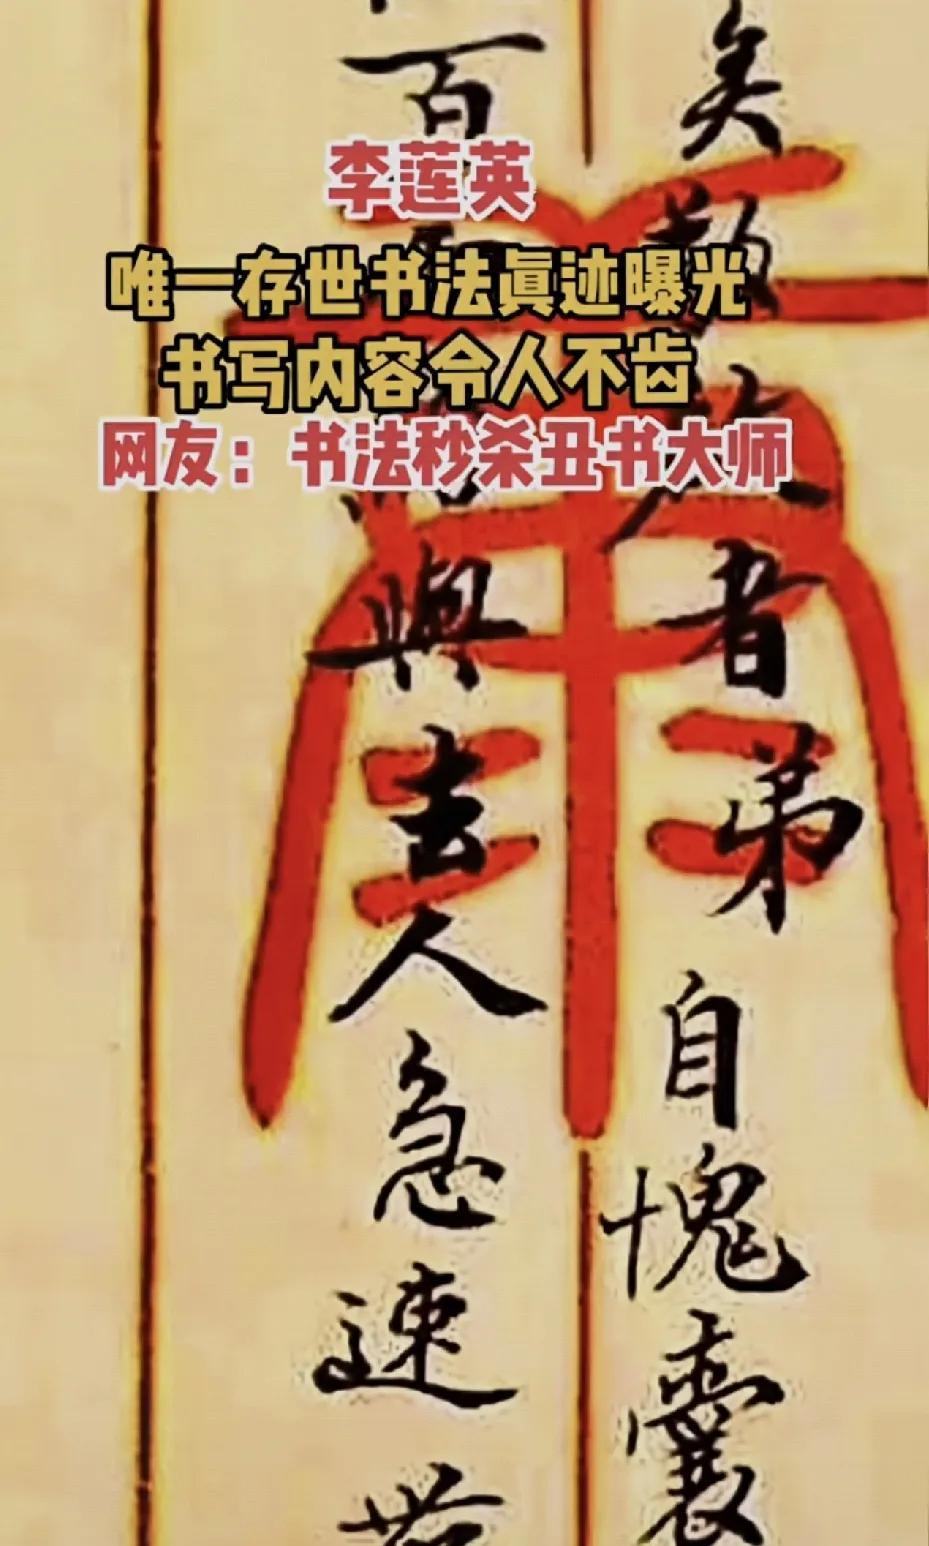 李莲英
唯一存世书法眞迹曝光
书写内容令人不齿
网友：书法秒杀丑书大师
矣 者弟自愧囊
百 與去人急速